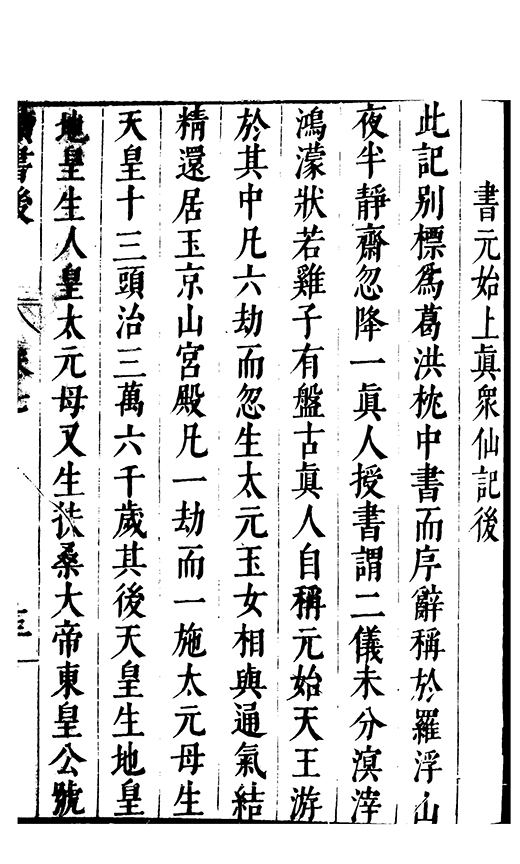 書元始上眞衆仙記後
此記别標爲葛洪枕中書而序辭稱於羅浮山
夜半靜齋忽降一眞人授書謂二儀未分溟涬
鴻濛狀若雞子有盤古眞人自稱元始天王游
於其中凡六劫而忽生太元玉女相與通氣結
精還居玉京山宮殿凡一劫而一施太元母生
天皇十三頭治三萬六千歲其後天皇生地皇
地皇生人皇太元母又生扶桑大帝東皇公號
書後 卷七